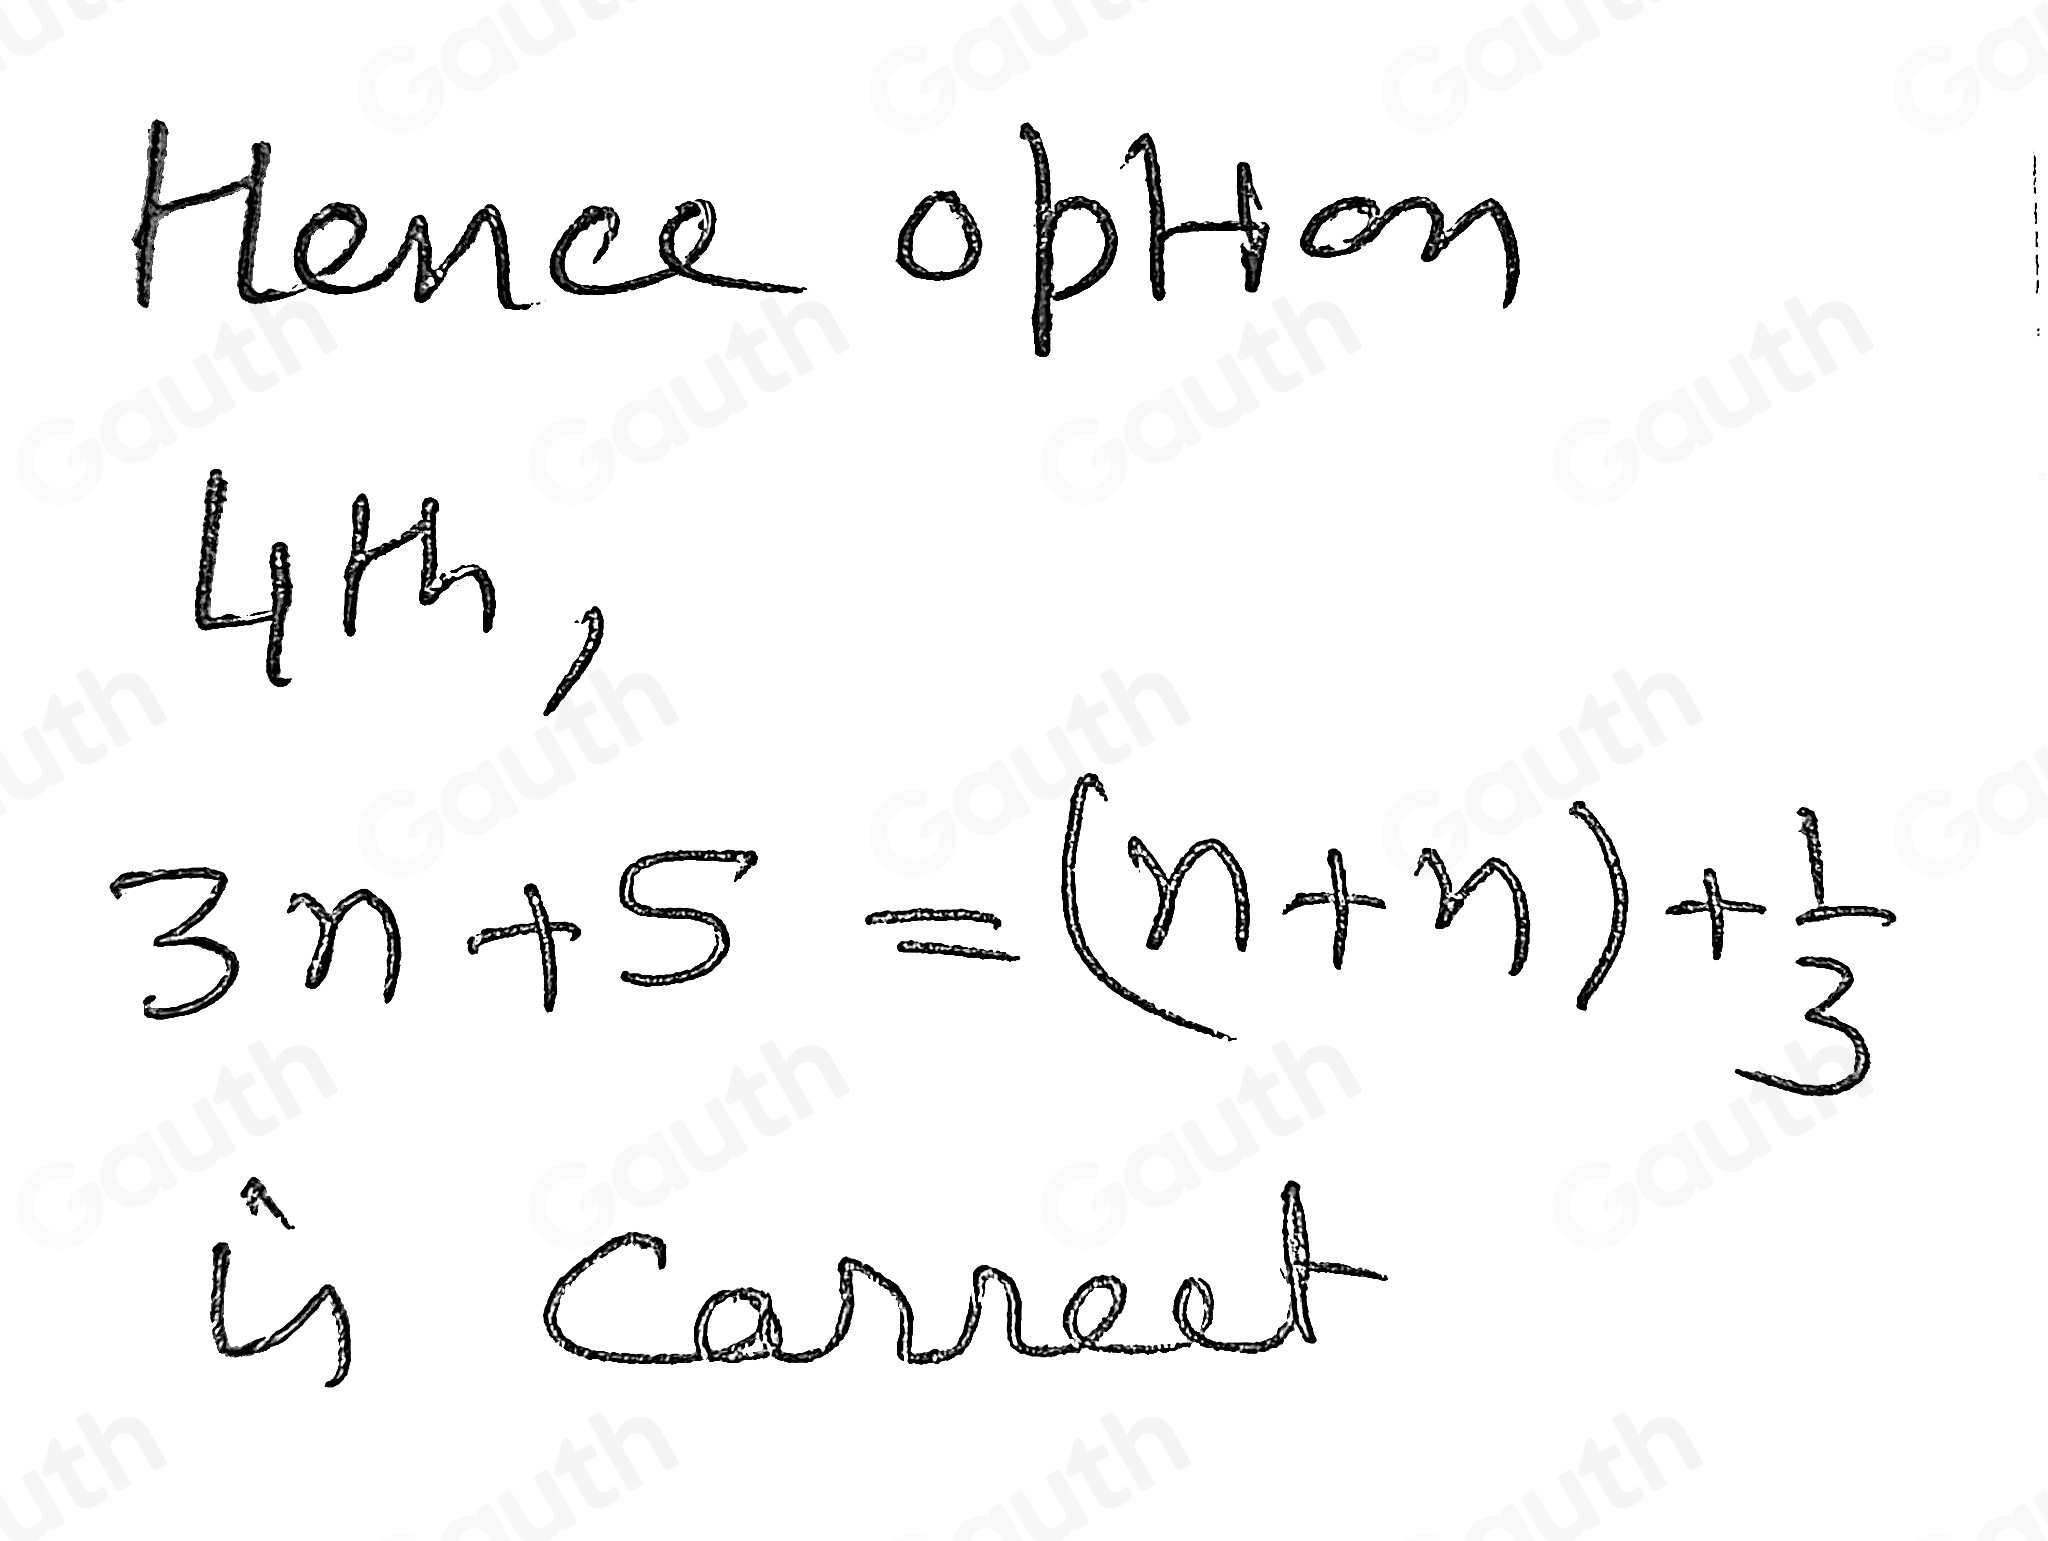 Hence option
4th,
3n+5 = (n+n) + 1/3
is Correct